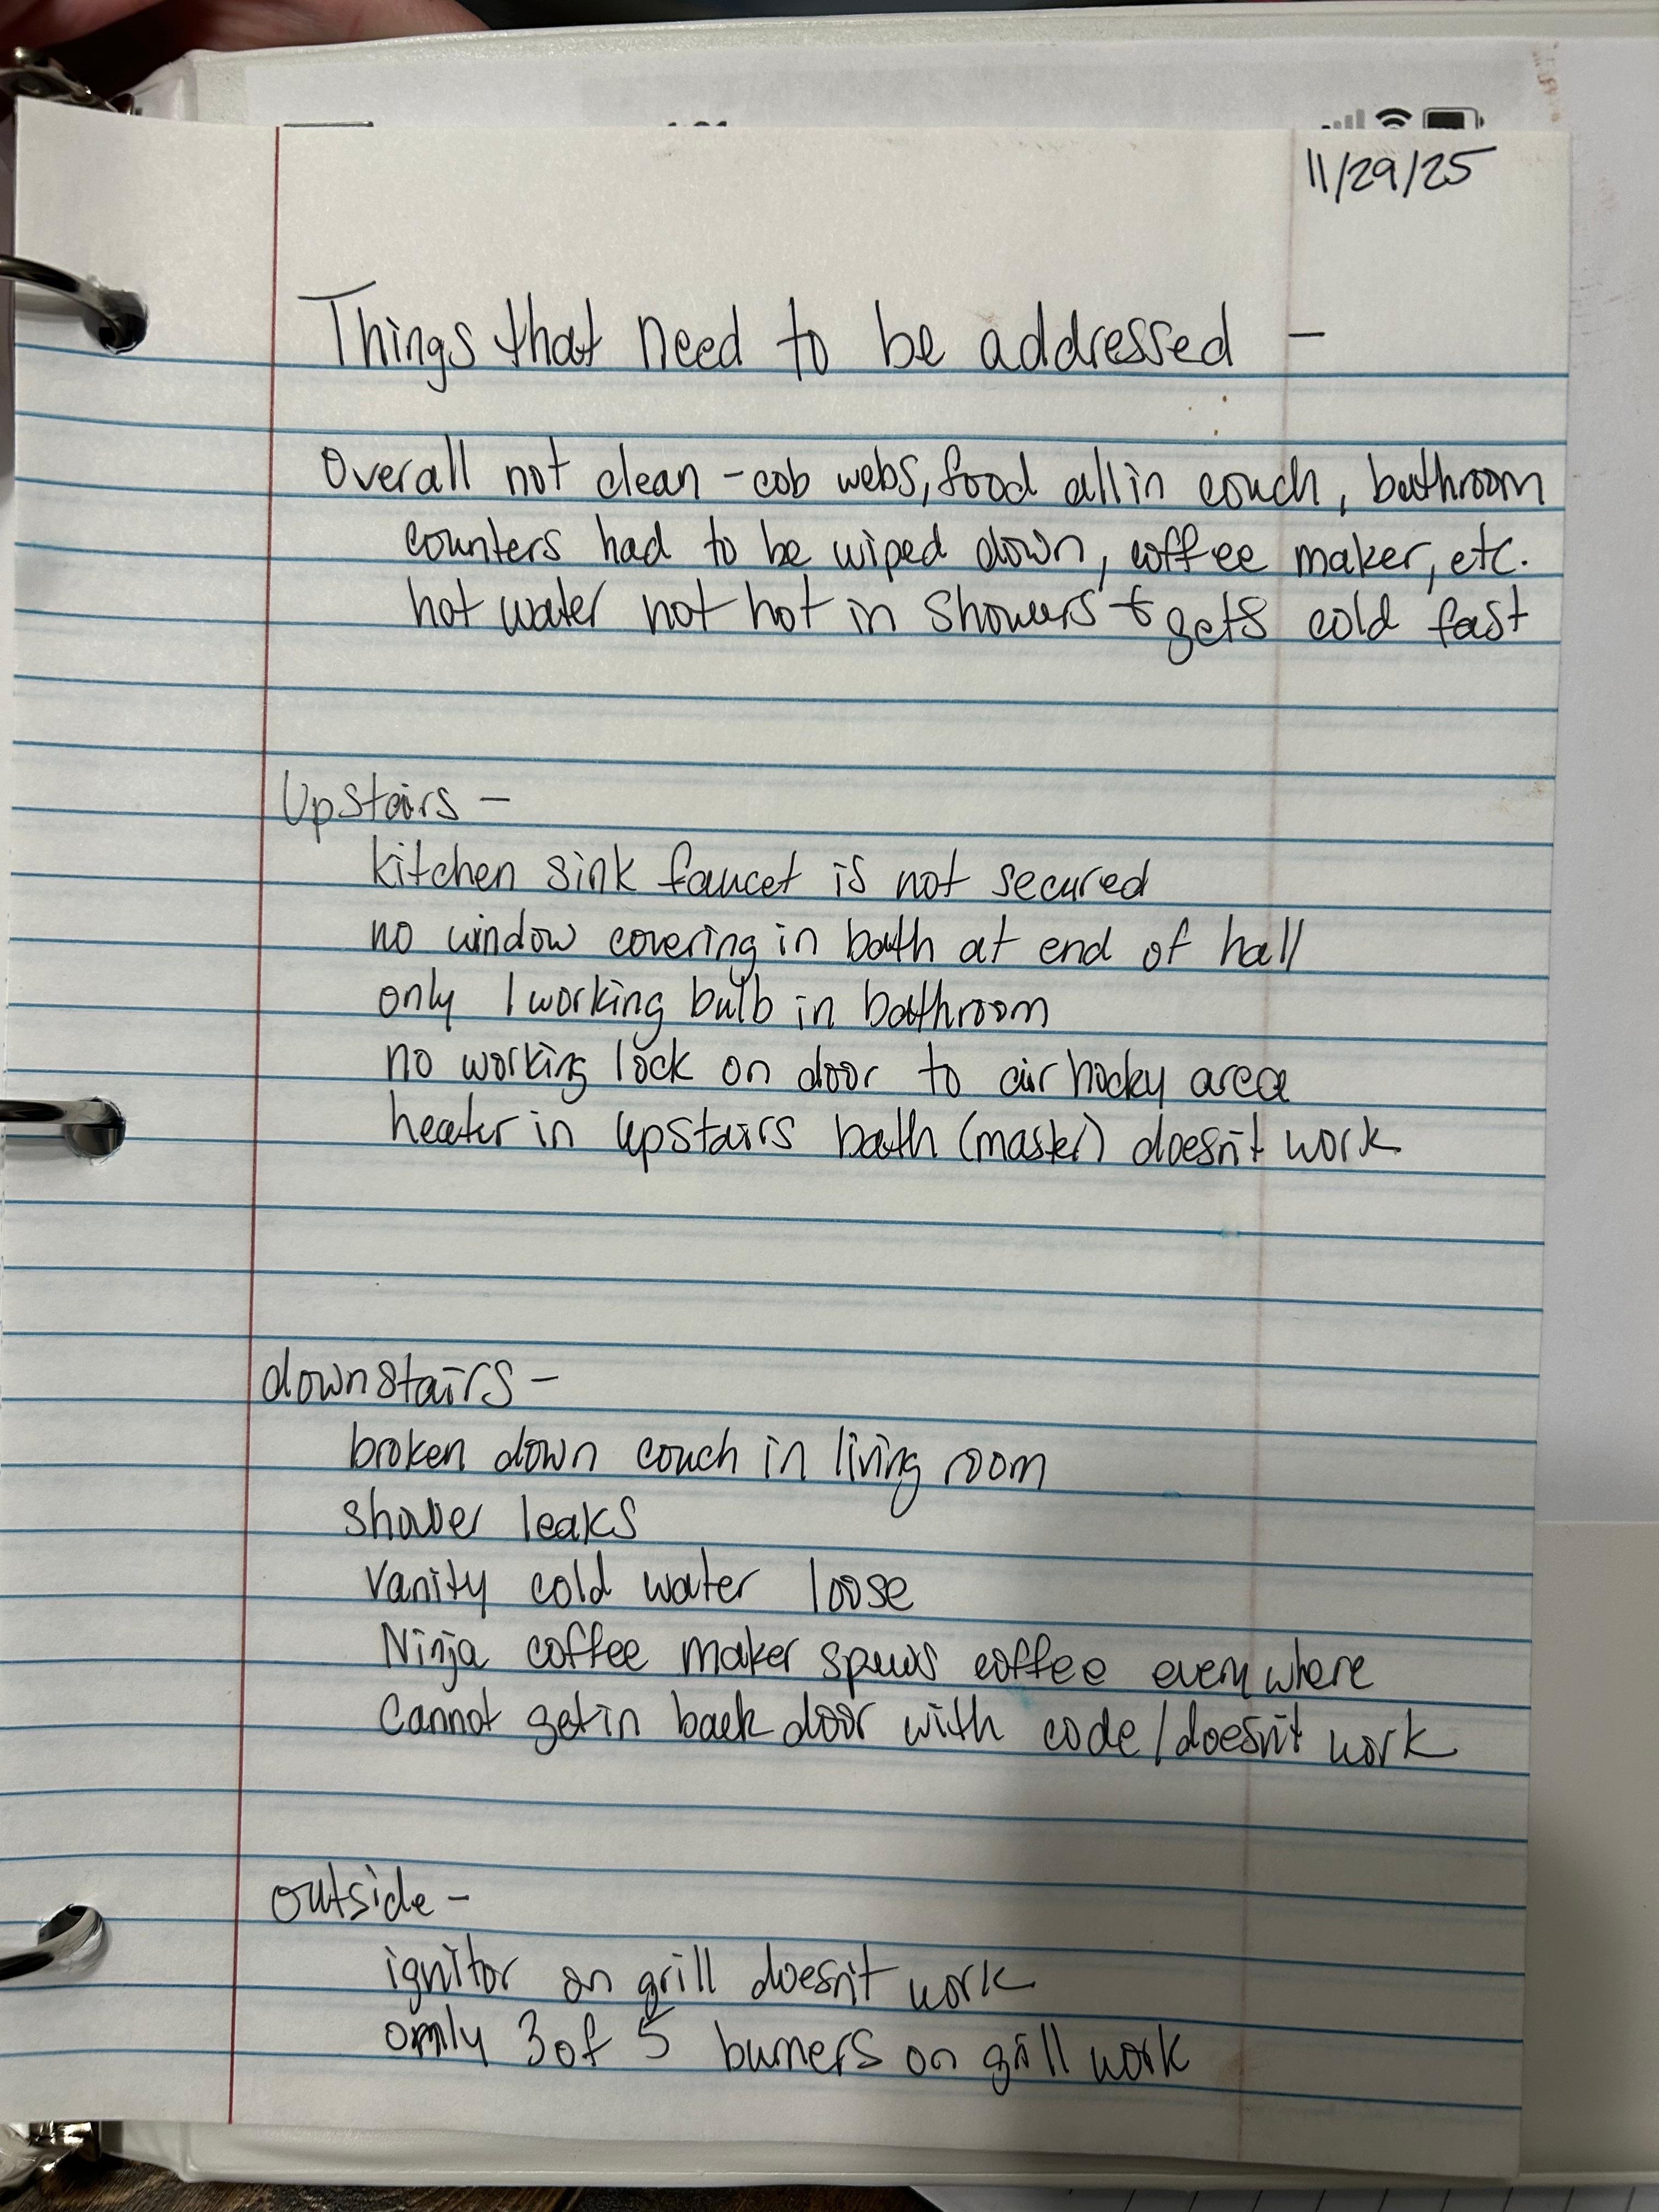 11/29/25
Things that need to be addressed -
Overall not clean - cob webs, food all in couch, bathroom
counters had to be wiped down, coffee maker, etc.
hot water not hot in showers & gets cold fast
Upstairs -
kitchen sink faucet is not secured
no window covering in bath at end of hall
only 1 working bulb in bathroom
no working lock on door to air hocky area
heater in upstairs bath (master) doesn't work
downstairs -
broken down couch in living room
shower leaks
Vanity cold water loose
Ninja coffee maker spews coffee everywhere
Cannot get in back door with code/doesn't work
outside -
ignitor on grill doesn't work
only 3 of 5 burners on grill work